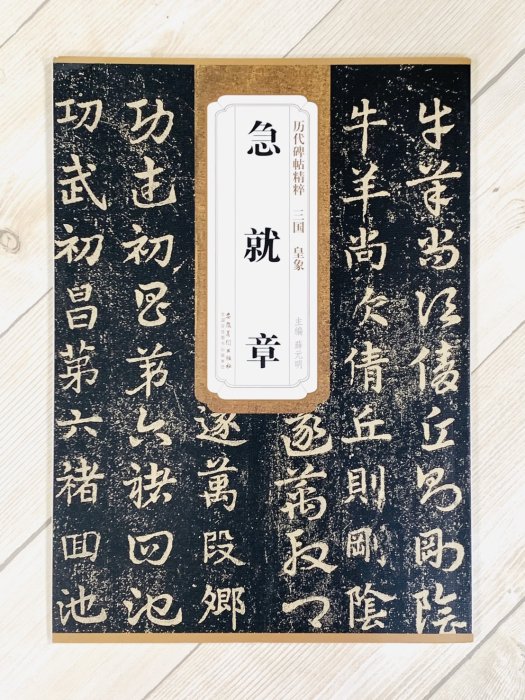 牛羊尚次倩丘則剛陰
牛羊尚次倩丘則剛陰
历代碑帖精粹 三国 皇象
主编 薛元明
急就章
安徽美術出版社
遂萬段卿
遂萬段卿
功武初昌第六褚回池
功武初昌第六褚回池